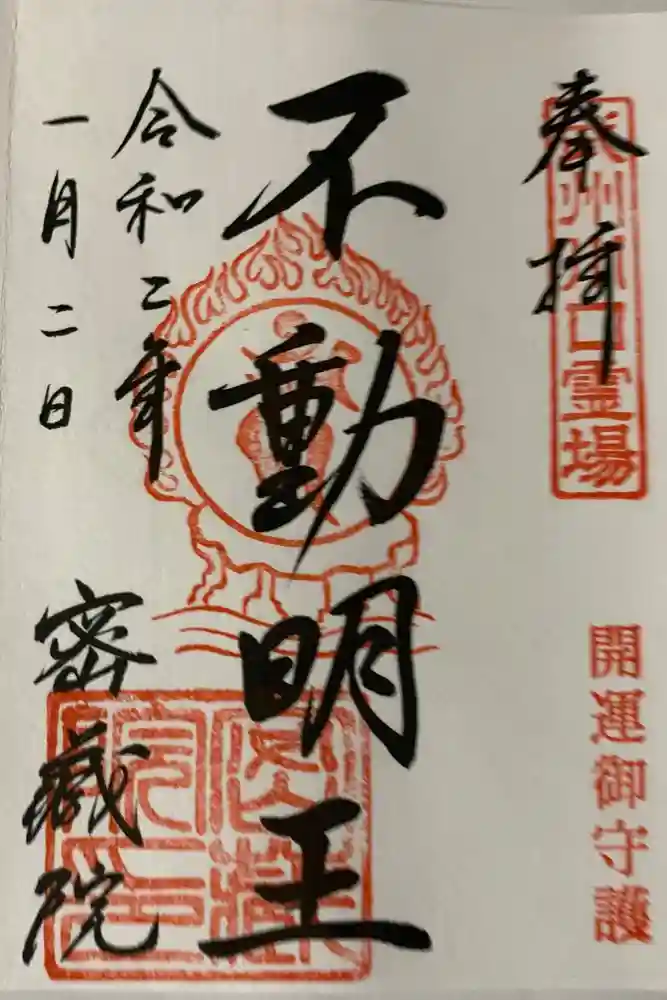 奉拝
武州川口霊場
開運御守護
不動明王
令和二年
一月二日
密蔵院
密蔵院印